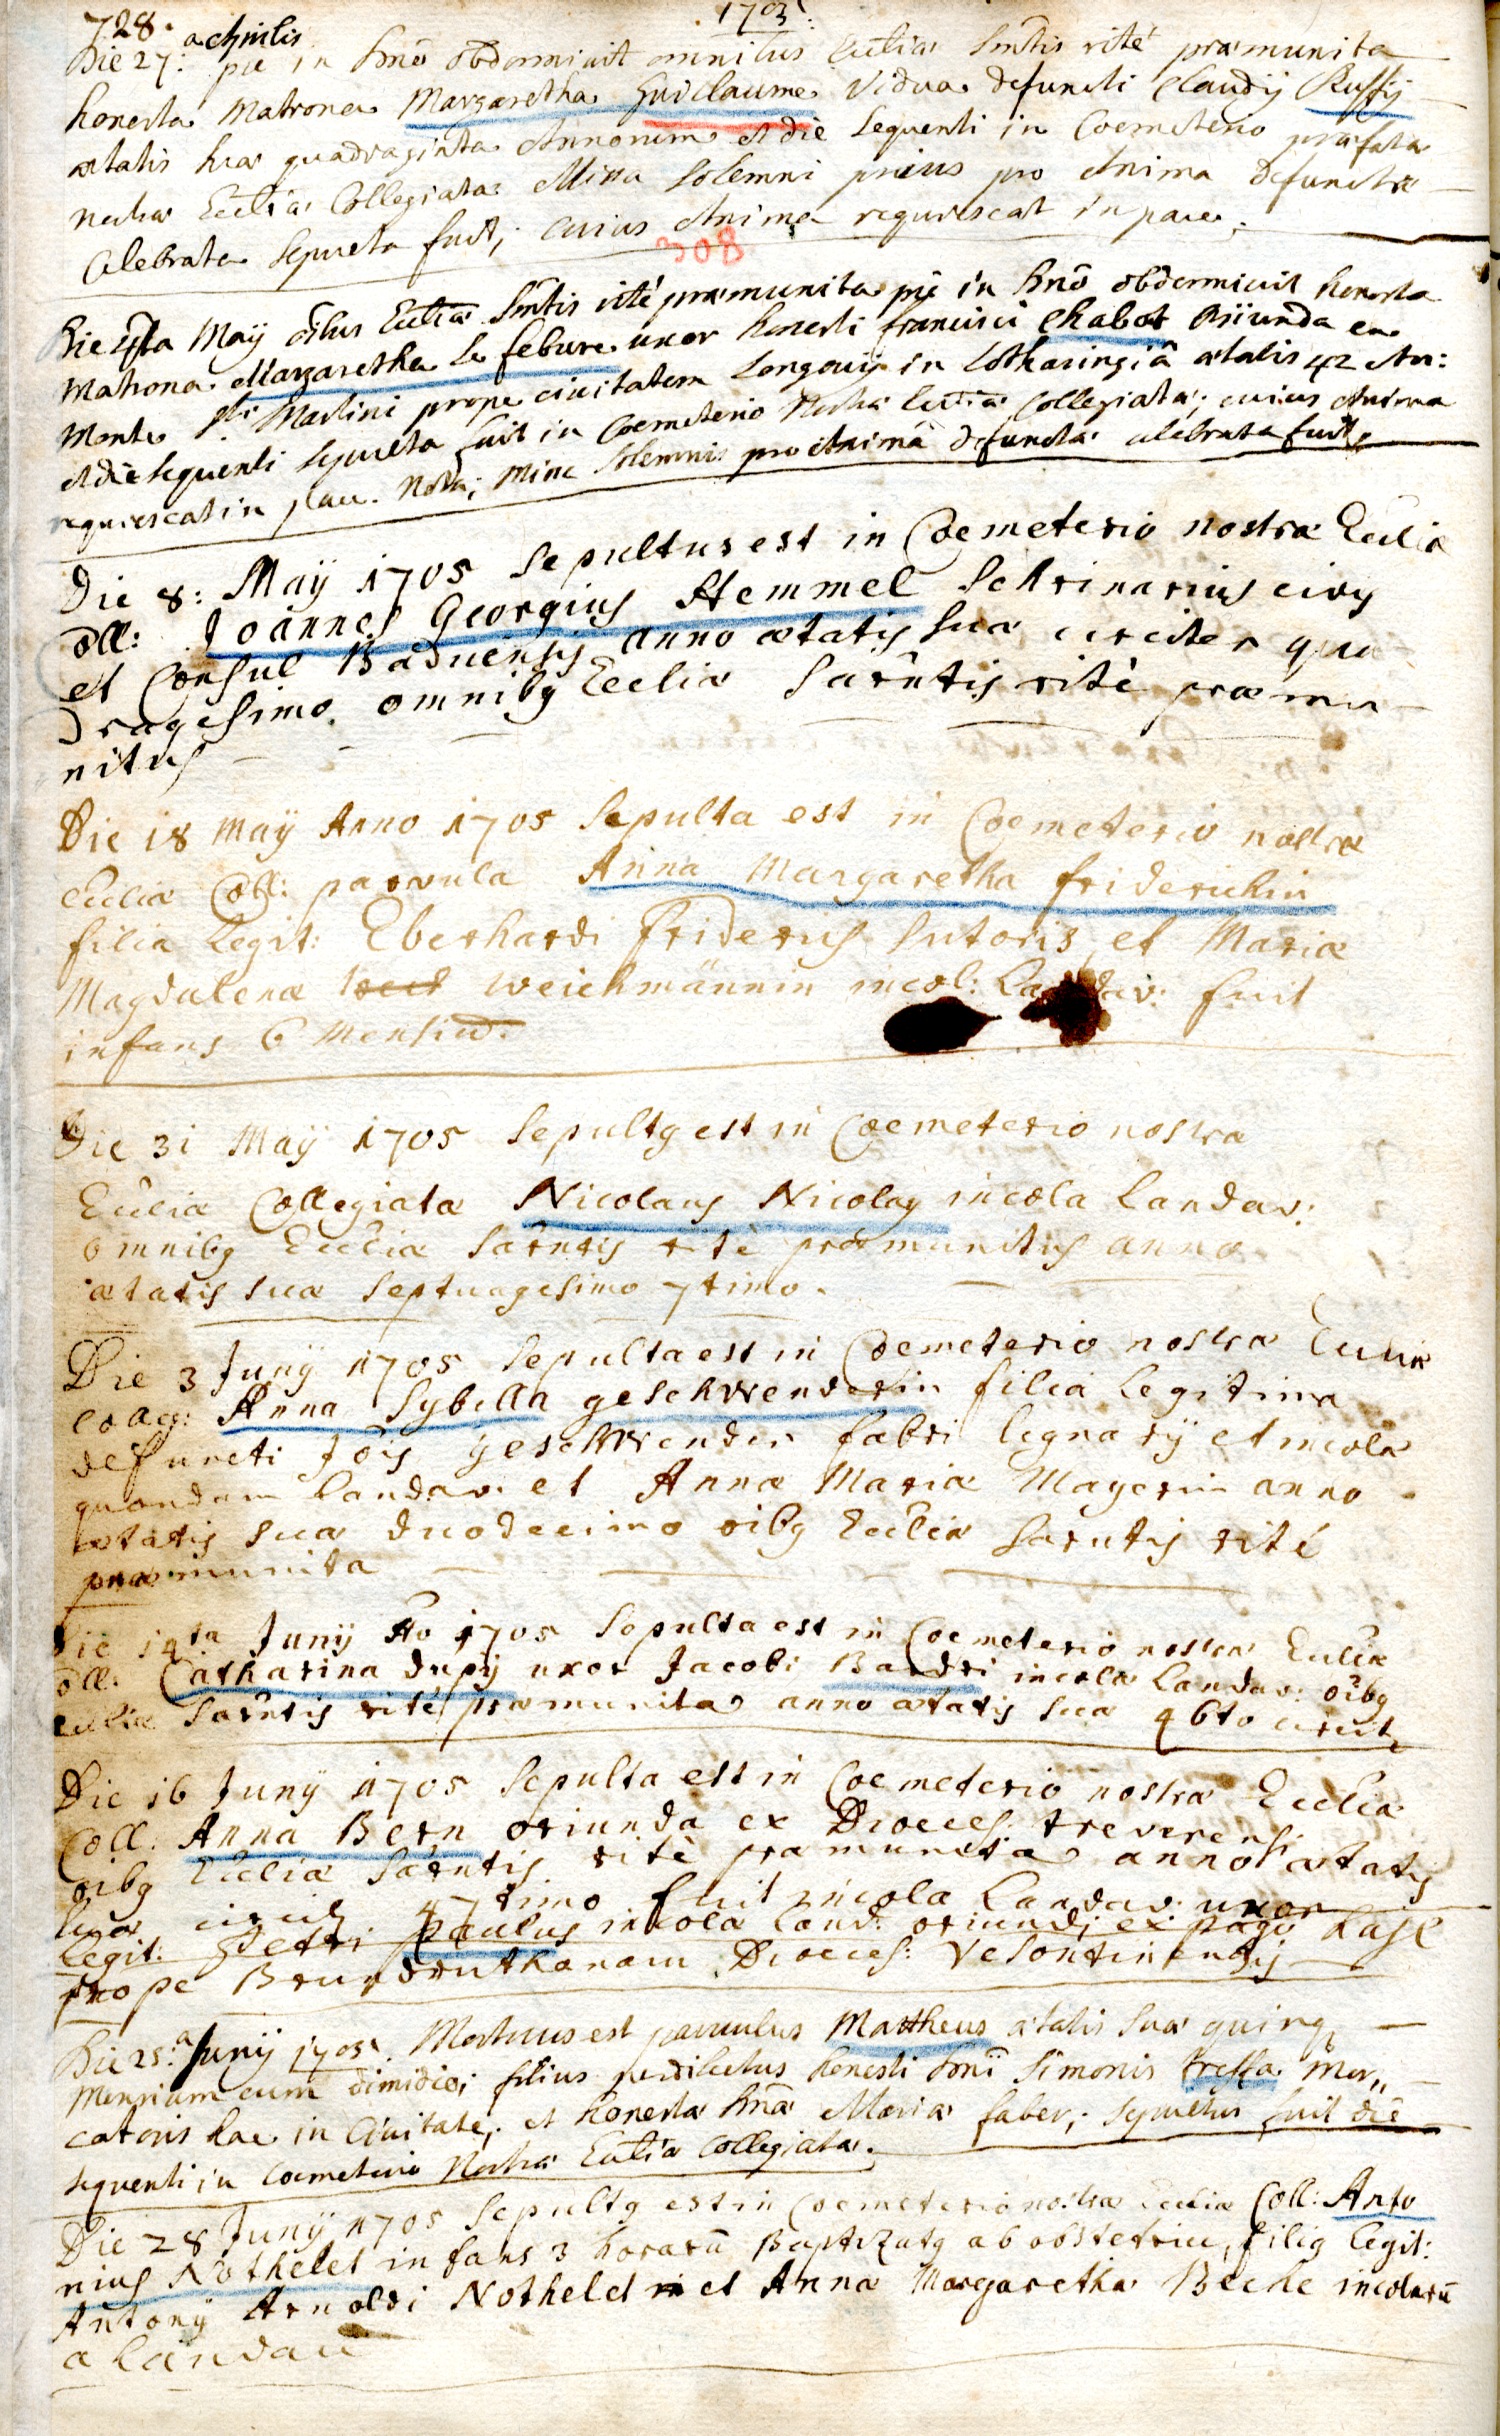 728. 1705.
Die 27: aprilis pie in Dno obdormivit omnibus Eccliæ Smtis rité præmunita
honesta Matrona Margaretha Guillaume Vidua defuncti Claudij Ruffij
ætatis suæ quadraginta Annorum et die sequenti in Coemeterio præfatæ
nostræ Eccliæ Collegiatæ Missa Solemni prius pro Anima defunctæ
Celebrata sepulta fuit; cuius Anima requiescat in pace.
308
Die May oibus Eccliæ Smtis rité præmunita pié in Dno obdormivit honesta
Matrona Margaretha Le febure uxor honesti francisci Chabot oriunda ex
Monte Sti Martini prope civitatem Longovij in Lotharingiâ ætatis 42 An:
et die sequenti sepulta fuit in Coemeterio Nostræ Eccliæ Collegiatæ; cuius Anima
requiescat in pace. Nota; Missa Solemnis pro Animâ defunctæ celebrata fuit.
Die 8: Maÿ 1705 Sepultus est in Coemeterio nostræ Eccliæ
Coll: Joannes Georgius Hemmel Schrinarius civis
et Consul Baduensis anno ætatis suæ circiter qua
dragesimo. omnibg Eccliæ Sacrntis ritè præmu
nitus
Die 18 Maÿ Anno 1705 Sepulta est in Coemeterio nostræ
Eccliæ Coll: parvula Anna Margaretha friderichin
filia Legit: Eberhardi Friderus Sutoris et Mariæ
Magdalenæ weichmännin incol: Landav: fuit
infans 6 Mensiū.
Die 31 Maÿ 1705 Sepultg est in Coemeterio nostræ
Eccliæ Collegiatæ Nicolaus Nicolay incola Landav:
omnibg Eccliæ Sacrntis ritè præmunitus anno
ætatis suæ Septuagesimo 7timo.
Die 3 Junÿ 1705 Sepulta est in Coemeterio nostræ Eccliæ
Colleg: Anna Sybilla geschwenderin filia Legitima
defuncti Jois geschwender fabri lignarÿ et incolæ
quondam Landav: et Annæ Mariæ Mayerin anno
ætatis suæ duodecimo oibg Eccliæ Sacrntis rité
præmunita
Die 14ta Junÿ Ao 1705 Sepulta est in Coemeterio nostræ Eccliæ
Coll: Catharina dupÿ uxor Jacobi Bardri incolæ Landav: oibg
Eccliæ Sacrntis rité præmunita anno ætatis suæ 46to circit,
Die 16 Junÿ 1705 Sepulta est in Coemeterio nostræ Eccliæ
Coll: Anna Bern oriunda ex Dioeces: treverensi
oibg Eccliæ Sacrntis ritè præmunita anno ætatis
suæ circit 47timo fuit incola Landav: uxor
Legit: Petri Paulus incolæ Land: oriundi ex pago
prope Brundruthanam Dioeces: Vesontinensis
Die 25:a Junij 1705. Mortuus est parvulus Mattheus ætatis suæ quinq,
Mensium cum dimidio; filius perdilectus honesti Dni Simonis Mer,,
catoris hac in Civitate, et honestæ Dnæ Mariæ faber; sepultus fuit die
sequenti in Coemeterio Nostræ Eccliæ Collegiatæ.
Die 28 Junÿ 1705 Sepultg est in Coemeterio nostræ Eccliæ Coll: Anto
nius Nothelet infans 3 horarū Baptizatg ab obstetrice, filig legit:
Antonÿ Arnoldi Nothelet et Anna Margaretha Beche incolarū
a Landau